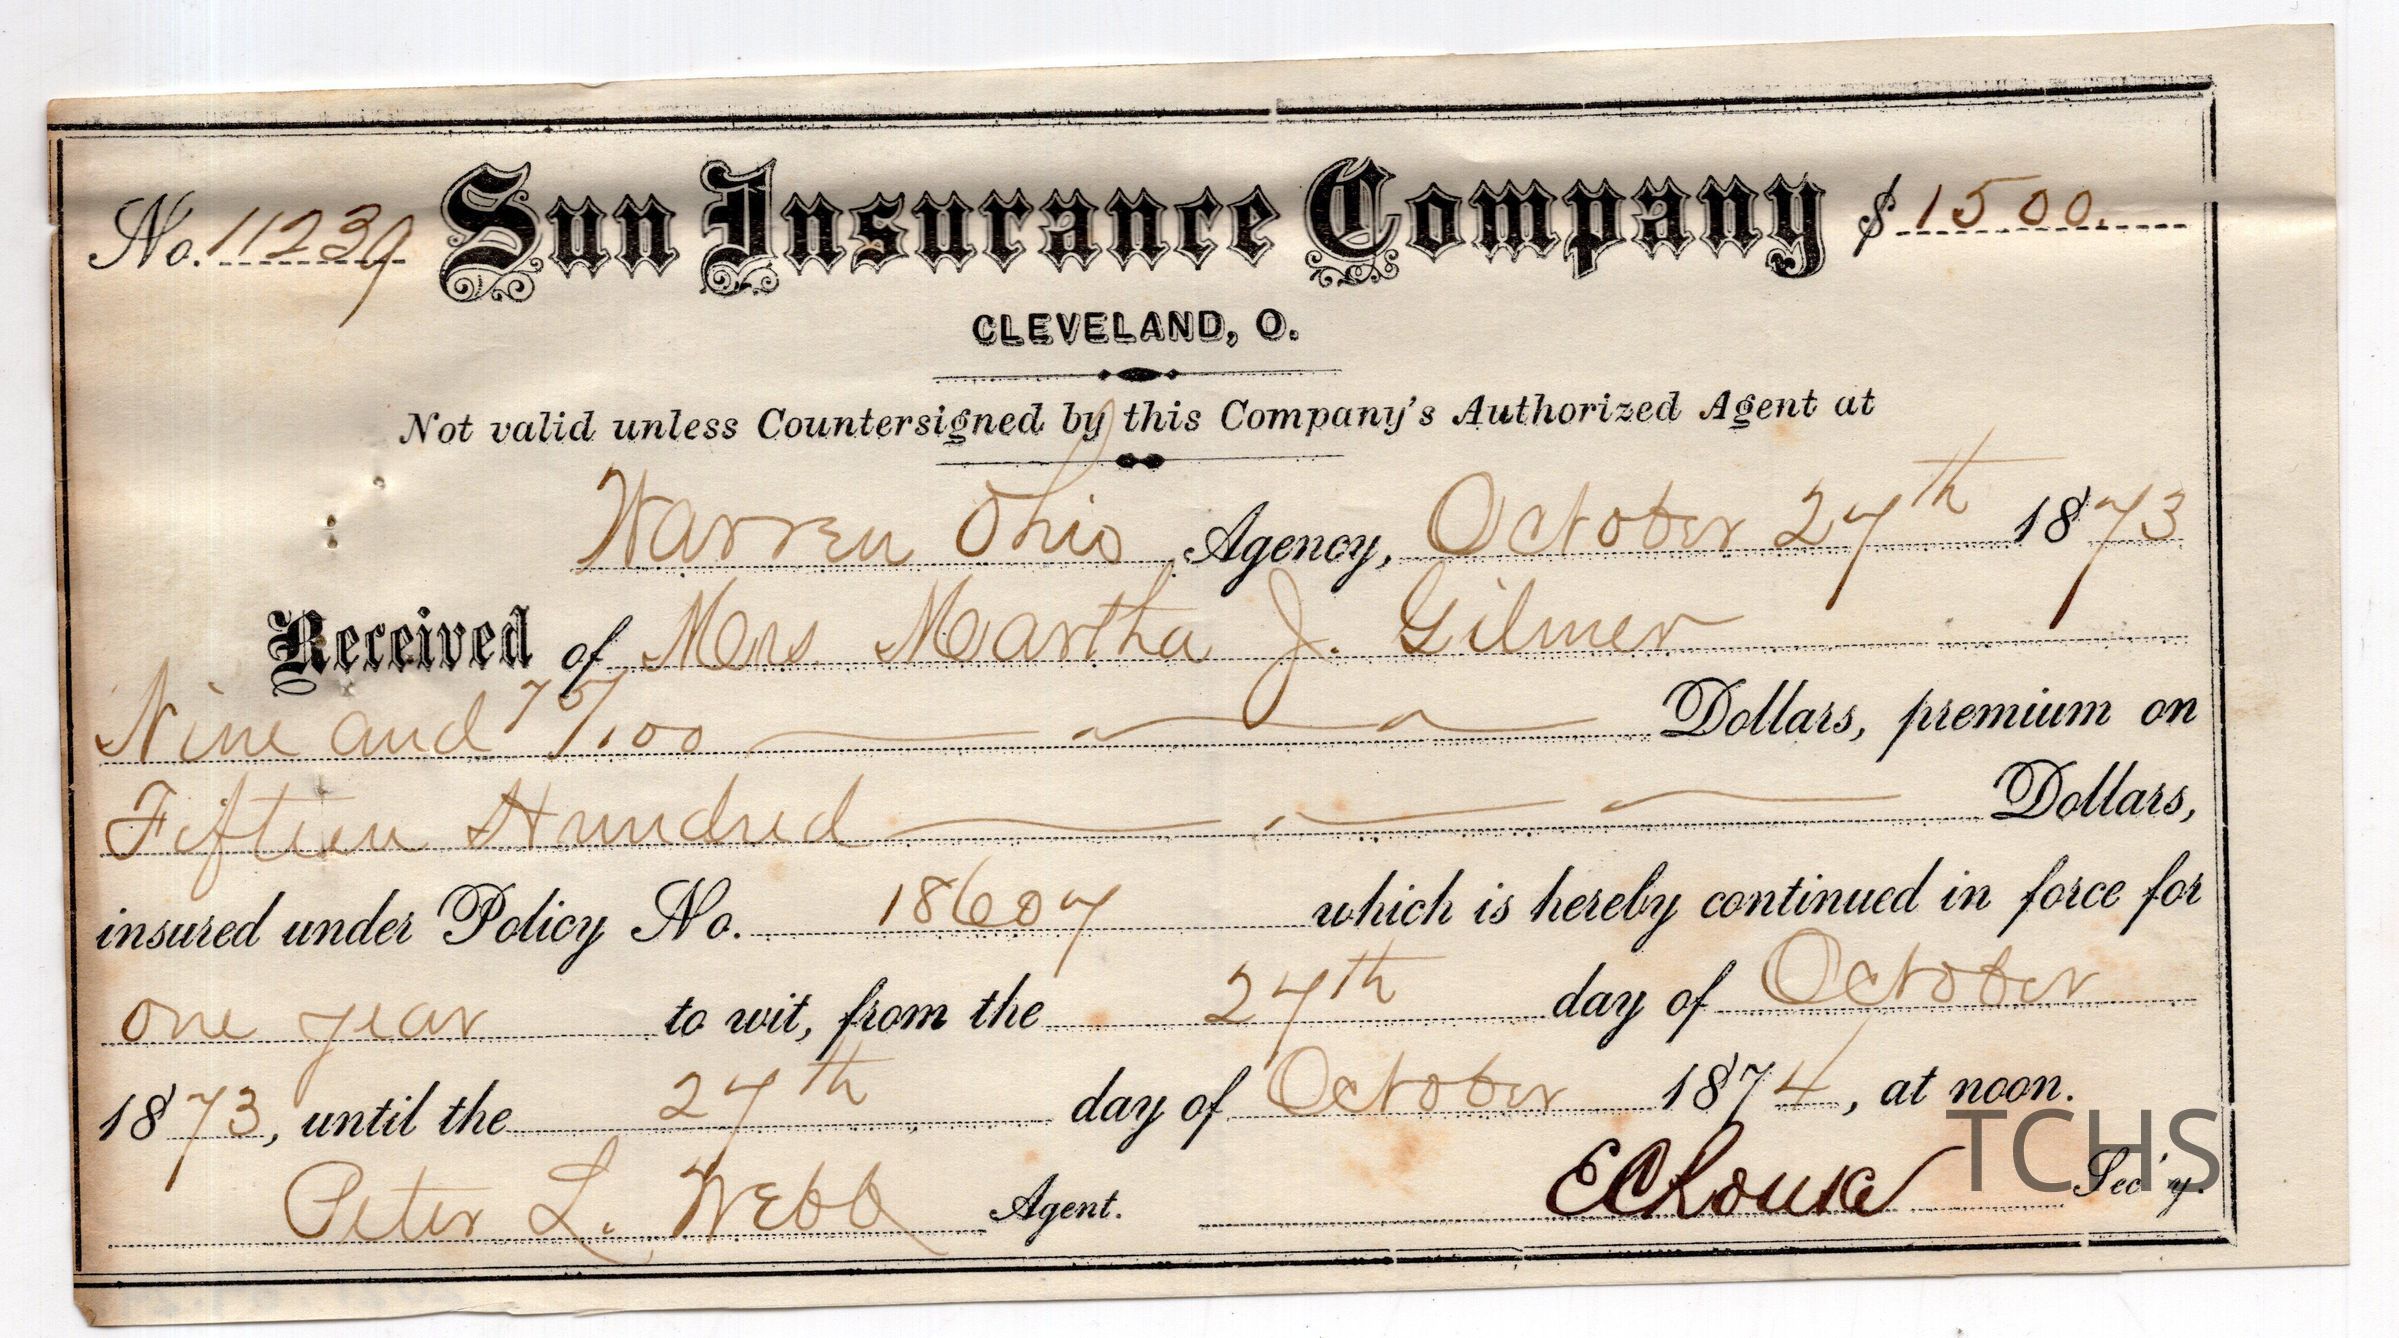 No. 11239 Sun Insurance Company $ 1500.
CLEVELAND, O.
Not valid unless Countersigned by this Company's Authorized Agent at
Warren Ohio Agency, October 27th 1873
Received of Mrs. Martha J. Gilmer
Nine and 75/100 Dollars, premium on
Fifteen Hundred Dollars,
insured under Policy No. 18607 which is hereby continued in force for
one year to wit, from the 27th day of October
1873, until the 27th day of October 1874, at noon.
Peter L. Webb Agent. E C Rouse Sec'y.
TCHS